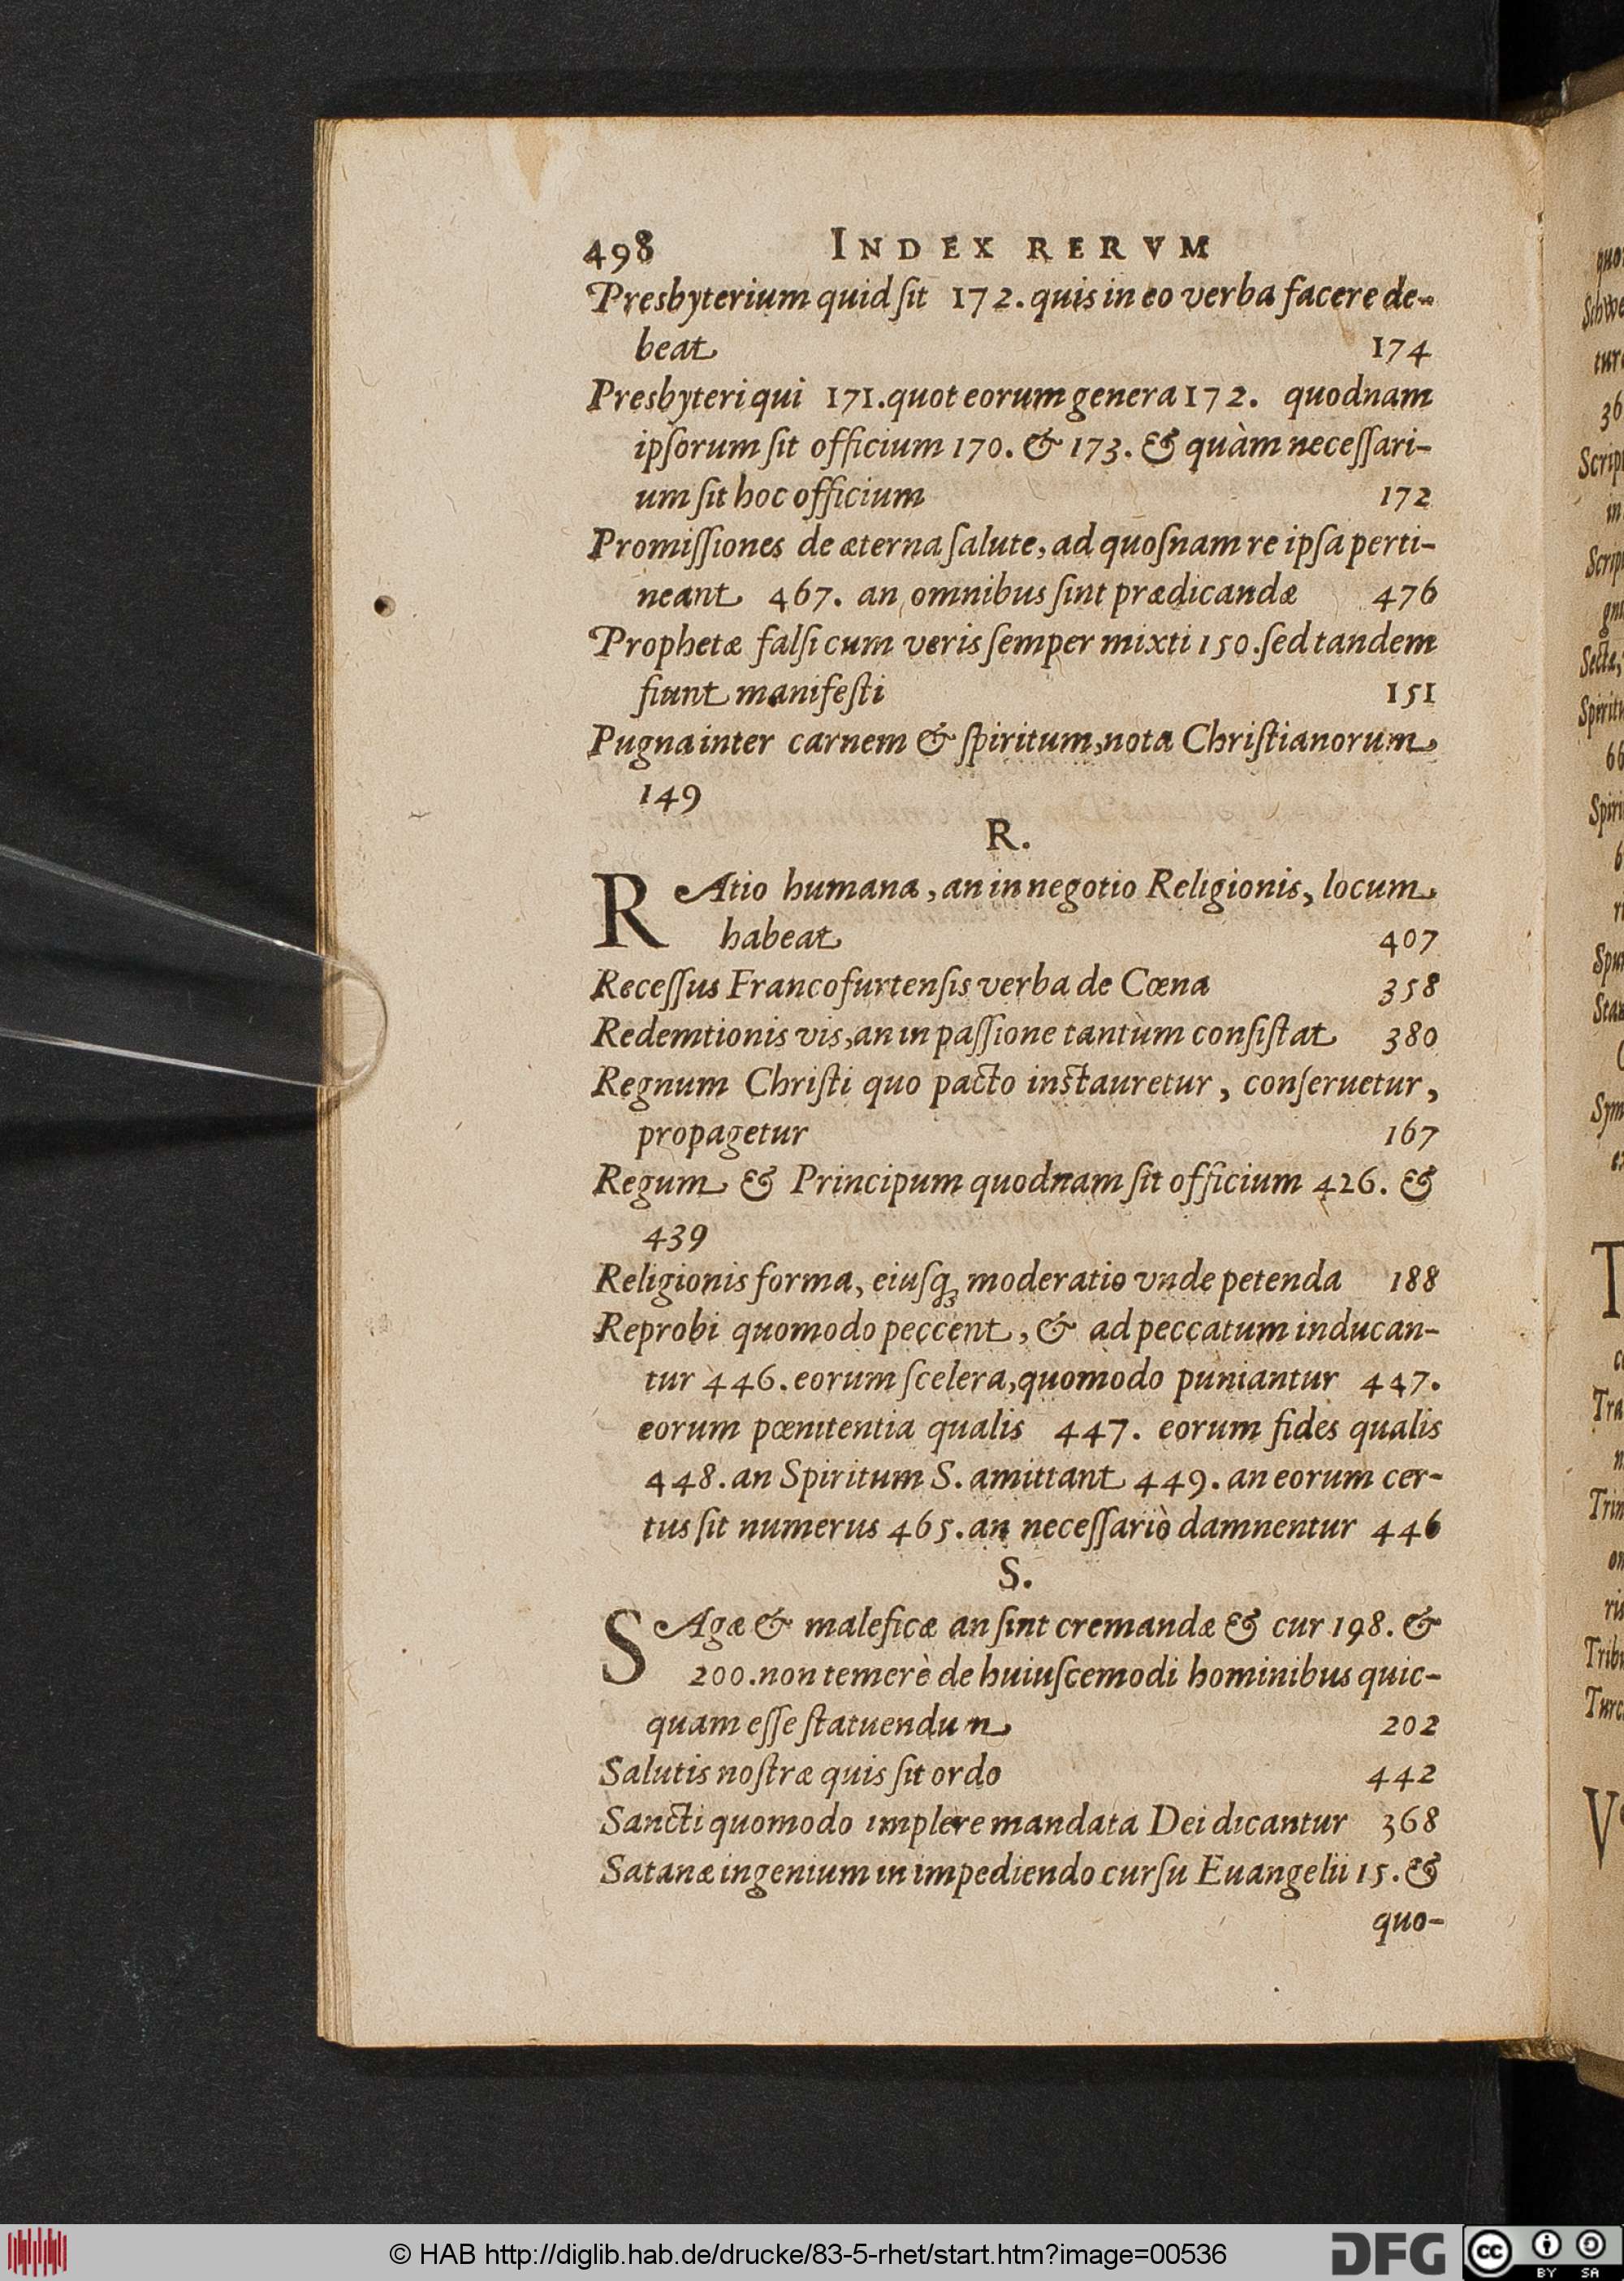 498 INDEX RERVM
Presbyterium quid ſit 172. quis in eo verba facere de-
beat 174
Presbyteri qui 171. quot eorum genera 172. quodnam
ipſorum ſit officium 170. & 173. & quàm neceſſari-
um ſit hoc officium 172
Promiſſiones de æterna ſalute, ad quoſnam re ipſa perti-
neant 467. an omnibus ſint prædicandæ 476
Prophetæ falſi cum veris ſemper mixti 150. ſed tandem
fiunt manifeſti 151
Pugna inter carnem & ſpiritum, nota Chriſtianorum,
149
R.
RAtio humana, an in negotio Religionis, locum
habeat 407
Receſſus Francofurtenſis verba de Cœna 358
Redemtionis vis, an in paſſione tantùm conſiſtat 380
Regnum Chriſti quo pacto inſtauretur, conſeruetur,
propagetur 167
Regum & Principum quodnam ſit officium 426. &
439
Religionis forma, eiuſq; moderatio vnde petenda 188
Reprobi quomodo peccent, & ad peccatum inducan-
tur 446. eorum ſcelera, quomodo puniantur 447.
eorum pœnitentia qualis 447. eorum fides qualis
448. an Spiritum S. amittant 449. an eorum cer-
tus ſit numerus 465. an neceſſariò damnentur 446
S.
SAgæ & maleficæ an ſint cremandæ & cur 198. &
200. non temerè de huiuſcemodi hominibus quic-
quam eſſe ſtatuendum 202
Salutis noſtræ quis ſit ordo 442
Sancti quomodo implere mandata Dei dicantur 368
Satanæ ingenium in impediendo curſu Euangelii 15. &
quo-
© HAB http://diglib.hab.de/drucke/83-5-rhet/start.htm?image=00536
DFG
cc BY SA